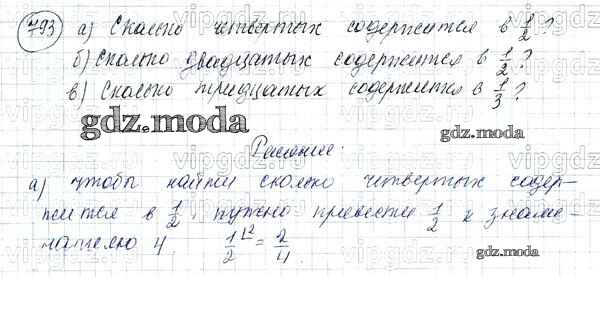 793 а) Сколько четвертых содержится в 1/2?
б) Сколько двадцатых содержится в 1/2?
в) Сколько тридцатых содержится в 1/3?
gdz.moda
gdz.moda
Решение.
а) чтобы найти сколько четвертых содер-
жится в 1/2 нужно привести 1/2 к знаме-
нателю 4. 1/2 ⌊2 = 2/4.
gdz.moda
vipgdz.vip